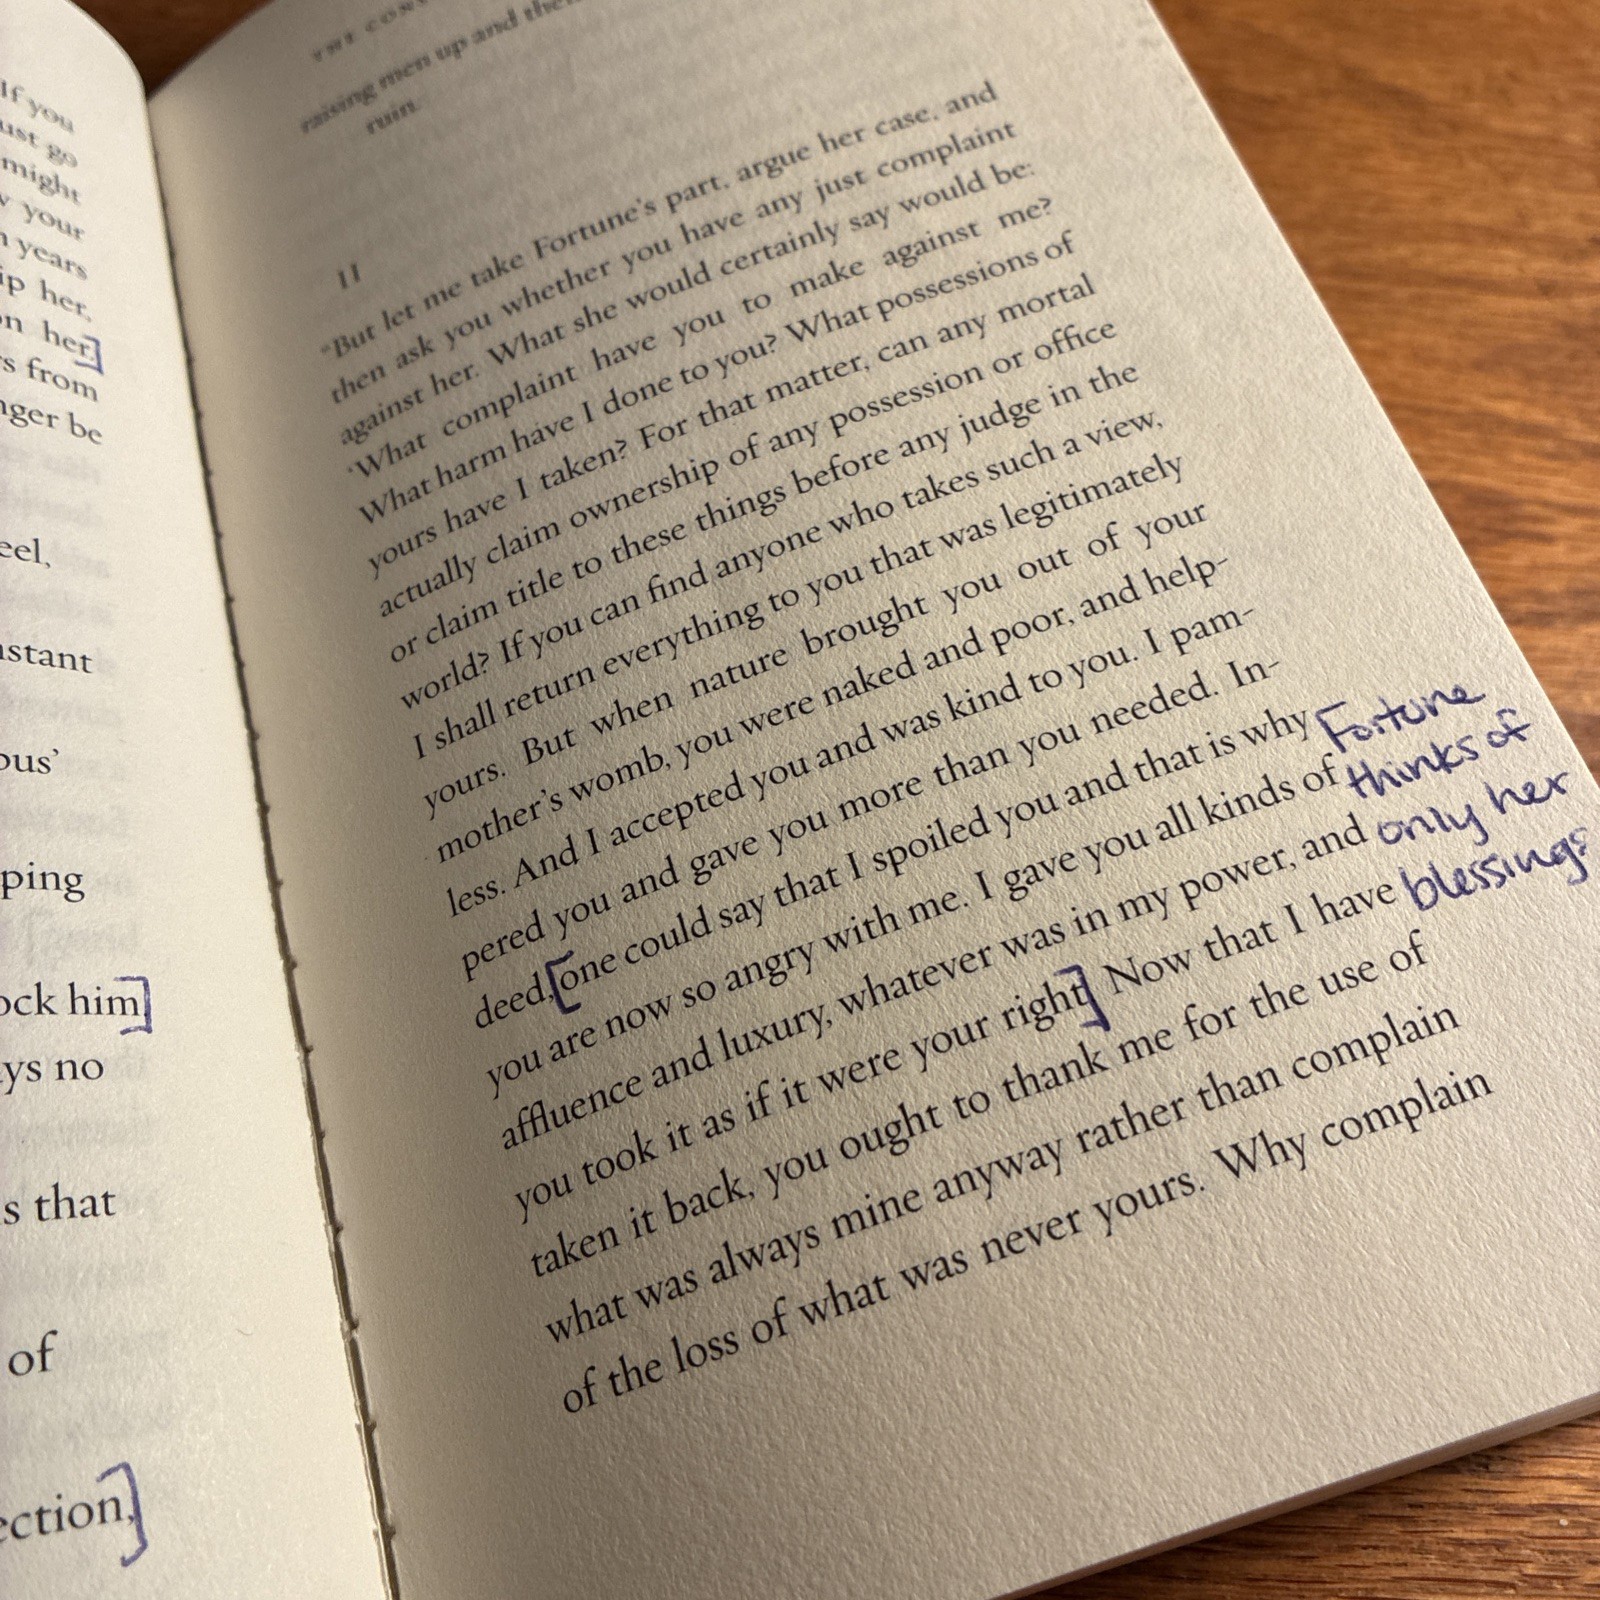 If you
ust go
might
your
years
ip her,
on her]
s from
nger be
eel,
nstant
ous'
ping
ock him]
ays no
s that
of
ection,]
THE CONS
raising men up and then
ruin.
II
"But let me take Fortune's part, argue her case, and
then ask you whether you have any just complaint
against her. What she would certainly say would be:
'What complaint have you to make against me?
What harm have I done to you? What possessions of
yours have I taken? For that matter, can any mortal
actually claim ownership of any possession or office
or claim title to these things before any judge in the
world? If you can find anyone who takes such a view,
I shall return everything to you that was legitimately
yours. But when nature brought you out of your
mother's womb, you were naked and poor, and help-
less. And I accepted you and was kind to you. I pam-
pered you and gave you more than you needed. In-
deed, [one could say that I spoiled you and that is why
you are now so angry with me. I gave you all kinds of
affluence and luxury, whatever was in my power, and
you took it as if it were your right] Now that I have
taken it back, you ought to thank me for the use of
what was always mine anyway rather than complain
of the loss of what was never yours. Why complain
Fortune
thinks of
only her
blessings